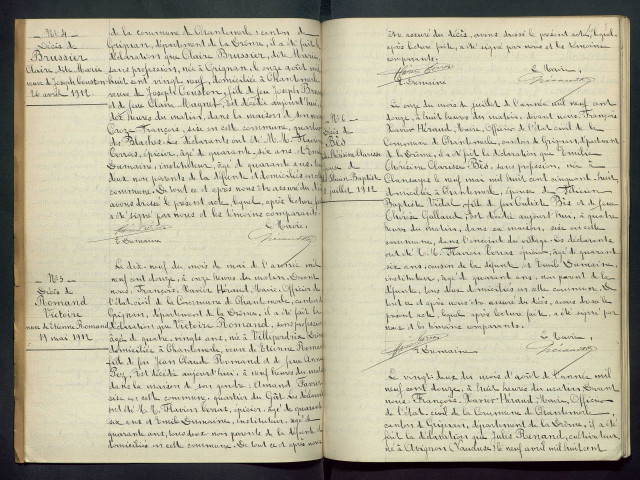 — N° 4 —
Décès de
Brussier
Claire, dite Marie
veuve de Joseph Couston
26 avril 1912
de la commune de Chantemerle, canton de
Grignan, département de la Drôme, il a été fait la
déclaration que Claire Brussier, dite Marie
sans profession, née à Grignan, le onze août mil
huit cent vingt neuf, domiciliée à Chantemerle
veuve de Joseph Couston, fille de feu Joseph Brussier
et de feue Claire Magnet, est décédée aujourd'hui, à
dix heures du matin, dans la maison de son
François, sise en cette commune, quartier
des Blaches. Les déclarants ont été M.M. Flavien
Cerras, épicier, âgé de quarante six ans et Emile
Dumaine, instituteur, âgé de quarante ans, tous
deux non parents de la défunte et domiciliés en cette
commune. De tout ce et après nous être assuré du décès
avons dressé le présent acte, lequel, après lecture faite,
a été signé par nous et les témoins comparants.
Le Maire,
E Dumaine
— N° 5 —
Décès de
Romand
Victoire
veuve de Etienne Romand
19 mai 1912
Le dix neuf du mois de mai de l'année mil
neuf cent douze, à onze heures du matin. Devant
nous, François Xavier Héraud, Maire, Officier de
l'état civil de la Commune de Chantemerle, canton de
Grignan, département de la Drôme, il a été fait la
déclaration que Victoire Romand, sans profession
âgée de quatre vingts ans, née à Villeperdrix Drôme
domiciliée à Chantemerle, veuve de Etienne Romand
fille de feu Jean Claude Romand et de feue Anne
est décédée aujourd'hui, à neuf heures du matin
dans la maison de son gendre Amand Favier
sise en cette commune, quartier du Gât. Les déclarants
ont été M.M. Flavien Cerras, épicier, âgé de quarante
six ans et Emile Dumaine, instituteur, âgé de
quarante ans, tous deux non parents de la défunte et
domiciliés en cette commune. De tout ce et après nous
être assuré du décès, avons dressé le présent acte, lequel,
après lecture faite, a été signé par nous et les témoins
comparants.
Le Maire,
E Dumaine
— N° 6 —
Décès de
Bès
Clarisse
Baptiste
juillet 1912
Le onze du mois de juillet de l'année mil neuf cent
douze, à huit heures du matin, devant nous, François
Xavier Héraud, Maire, Officier de l'état civil de la
Commune de Chantemerle, canton de Grignan, département
de la Drôme, il a été fait la déclaration que Emilie
Clarisse Bès, sans profession, née à
le neuf mai mil huit cent cinquante huit,
domiciliée à Chantemerle, épouse de
Baptiste Vidal, fille de feu Bès et de feue
Thérèse Galland, est décédée aujourd'hui, à quatre
heures du matin, dans sa maison, sise en cette
commune, dans l'enceinte du village. Les déclarants
ont été M.M. Flavien Cerras épicier, âgé de quarante
six ans, cousin de la défunte et Emile Dumaine
instituteur, âgé de quarante ans, non parent de la
défunte, tous deux domiciliés en cette commune. De
tout ce et après nous être assuré du décès, avons dressé le
présent acte, lequel, après lecture faite, a été signé par
nous et les témoins comparants.
Le Maire,
E Dumaine
Le vingt deux du mois d'août de l'année mil
neuf cent douze, à huit heures du matin. Devant
nous, François Xavier Héraud, Maire, Officier
de l'état civil de la Commune de Chantemerle
canton de Grignan, département de la Drôme, il a été
fait la déclaration que Jules Renand, cultivateur
né à Avignon (Vaucluse) le neuf avril mil huit cent